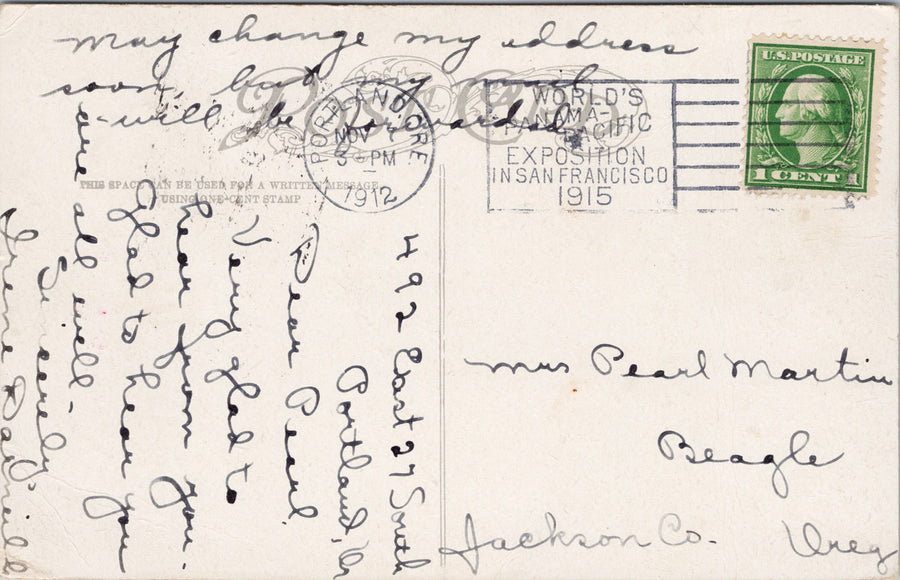 492 East 27 South
Portland, Or
Dear Pearl
Very glad to
hear from you.
Glad to hear you
are all well.
Sincerely
Irene
may change my address
soon, but my mail
will be forwarded.
Post Card
THIS SPACE CAN BE USED FOR A WRITTEN MESSAGE
USING ONE-CENT STAMP
PORTLAND, ORE
NOV
3 - PM
1912
WORLD'S
PANAMA-
PACIFIC
EXPOSITION
IN SAN FRANCISCO
1915
U.S. POSTAGE
1 CENT 1
Mrs Pearl Martin
Beagle
Jackson Co. Oreg